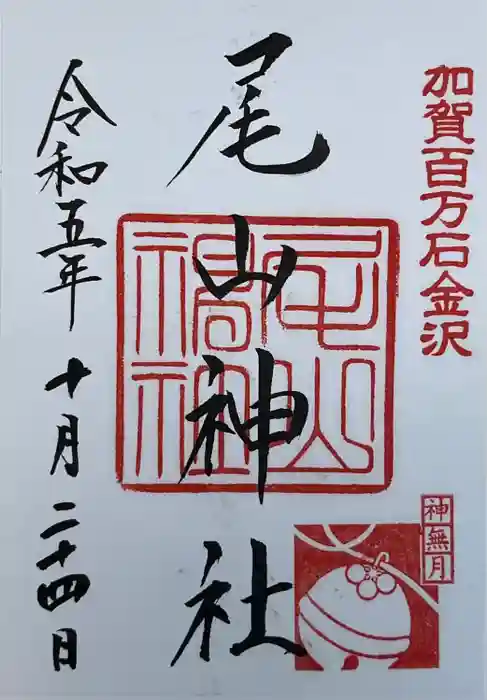 加賀百万石金沢
神無月
尾山神社
令和五年 十月 二十四日